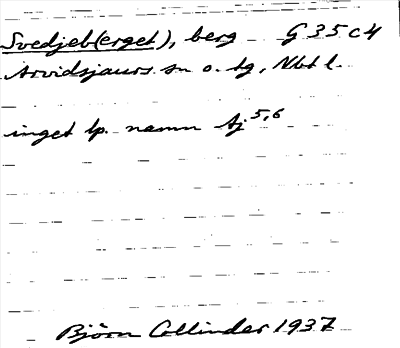 Svedjeb(erget), berg G 35 c 4
Arvidsjaurs sn o. tg, Nbt l.
inget lp. namn Aj 5,6
Björn Collinder 1937